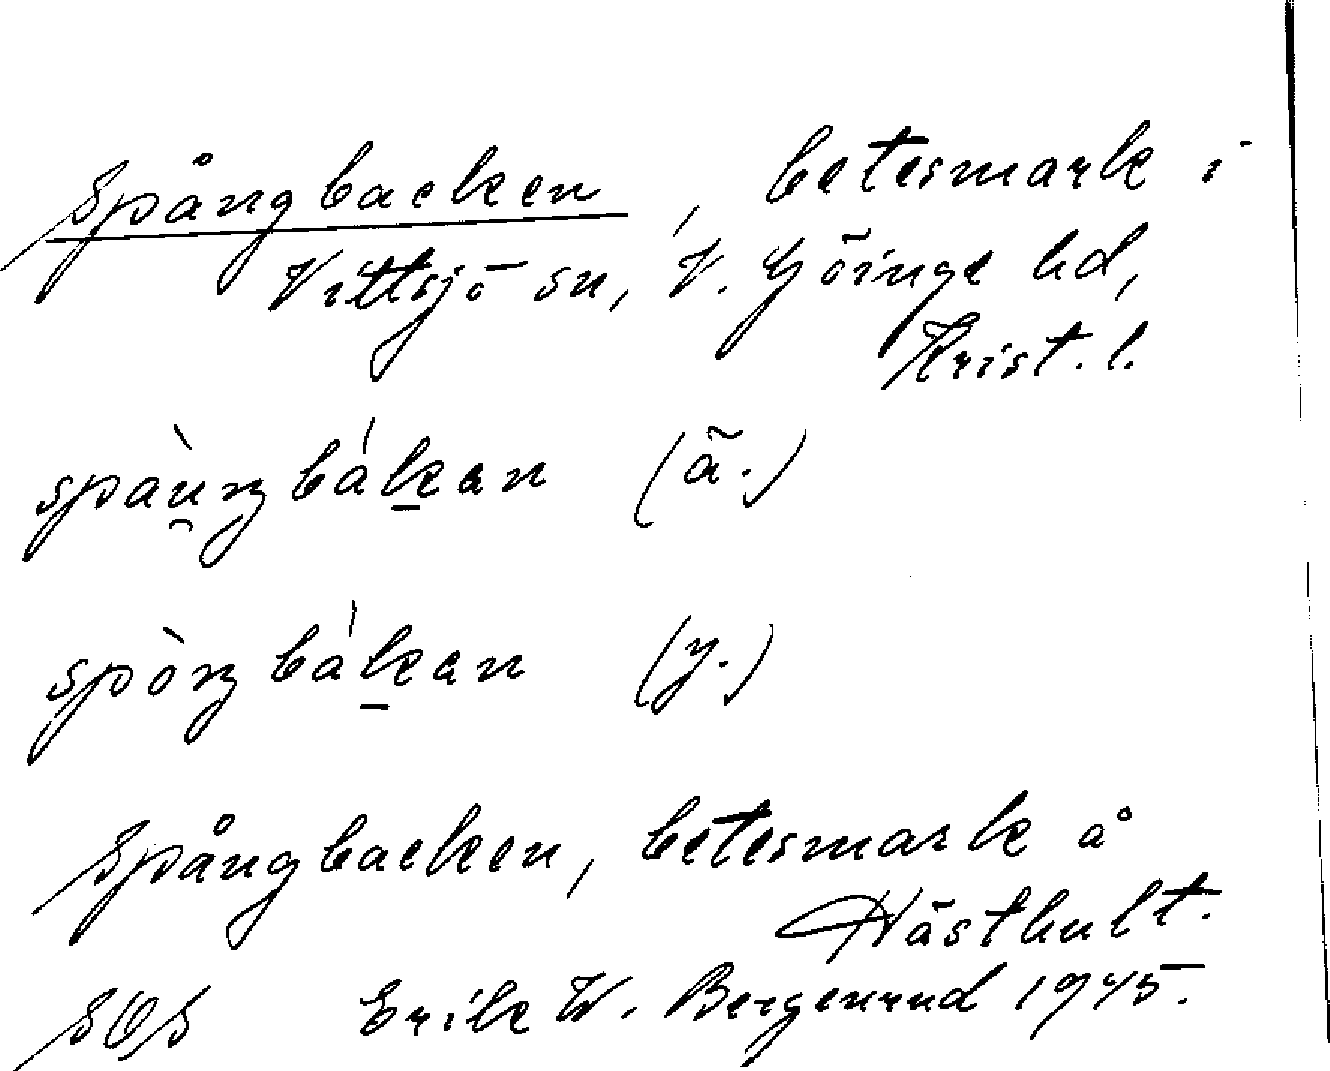 Spångbacken, betesmark i
Vittsjö sn, V. Göinge hd,
Krist. l.
spàu̯ŋbák̠an (ä.)
spòŋbák̠an (y.)
Spångbacken, betesmark å
Hästhult.
SOS Erik W. Bergenrud 1945.